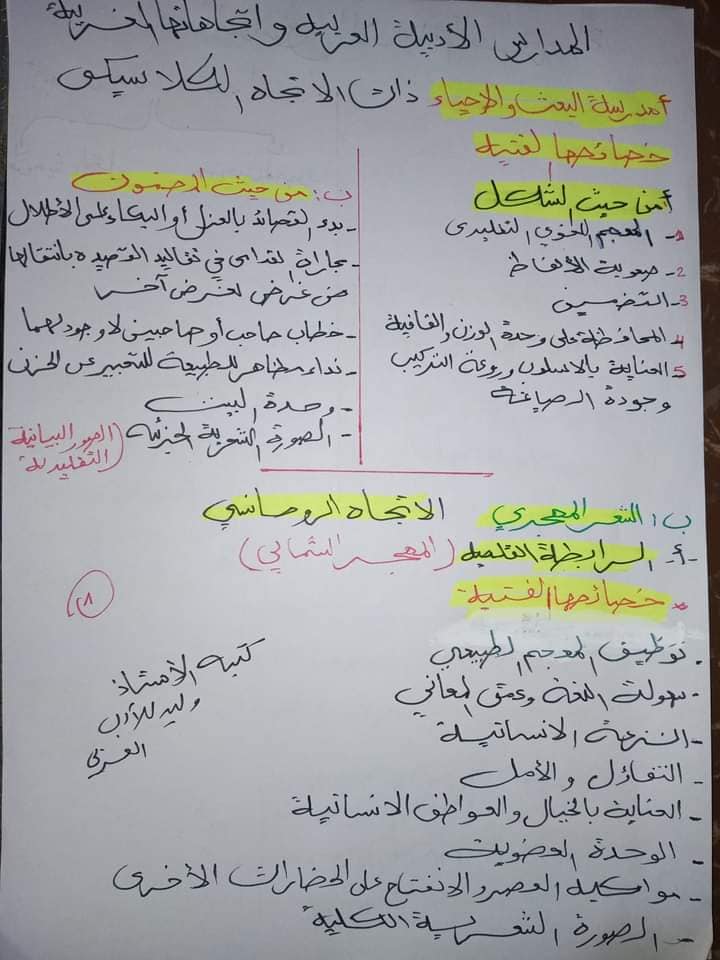 المدارس الأدبية العربية واتجاهاتها الغربية
أ مدرسة البعث والإحياء ذات الاتجاه الكلاسيكي
خصائصها الفنية
أ من حيث الشكل
1- المعجم اللغوي التقليدي
2- صعوبة الألفاظ
3- التضمين
4- المحافظة على وحدة الوزن والقافية
5- العناية بالاسلوب وروعة التركيب
وجودة الصياغة
ب: من حيث المضمون
- بدء القصائد بالغزل أو البكاء على الأطلال
- مجاراة القدامى في تقاليد القصيدة بانتقالها
من غرض لغرض آخر
- خطاب صاحب أو صاحبين لا وجود لهما
- نداء مظاهر الطبيعة للتعبير عن الحزن
- وحدة البيت
- الصورة الشعرية الجزئية (الصور البيانية
التقليدية
ب: الشعر المهجري الاتجاه الرومانسي
أ- الرابطة القلمية (المهجر الشمالي)
* خصائصها الفنية
- توظيف المعجم الطبيعي
- سهولة اللغة وعمق المعاني
- النزعة الانسانية
- التفاؤل والأمل
- العناية بالخيال والعواطف الانسانية
- الوحدة العضوية
- مواكبة العصر والانفتاح على الحضارات الأخرى
- الصورة الشعرية الكلية
كتبه الأستاذ
وليد للأدب
العربي